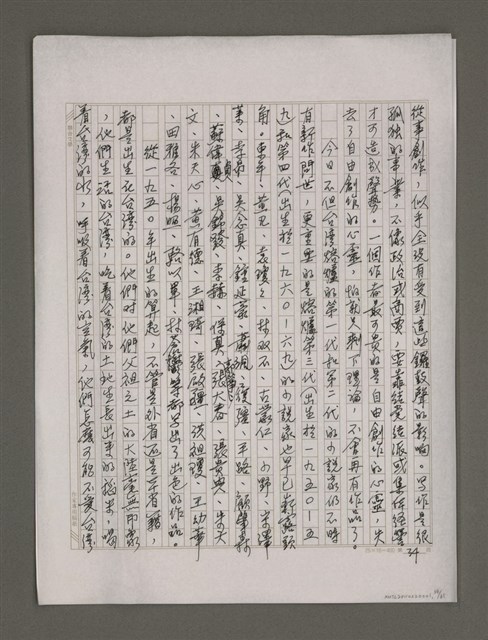 從事創作，似乎全沒有受到直的鑼鼓聲的影响。寫作是很
孤独的事業，不像政治或商賈，要靠結党结派或集体經營
才可造成聲勢。一個作者最可貴的是自由創作的心靈，失
去了自由創作的心靈，怕就只剩下理論，不會再有作品了。
今日不但台湾熔爐的第一代和第二代的小說家仍不時
有新作問世，更重要的是熔爐第三代出生於一九五〇—五
九和第四代出生於一九六〇—六九的小說家也早已嶄露頭
角。東年、黃凡、袁瓊瓊、林双不、古蒙仁、小野、宋澤
萊、李昂、吳念真、鍾延豪、蕭颯、履彊、平路、顧肇森
、蘇偉貞、吳錦發、李赫、保真、張大春、張貴興、朱天
文、朱天心、黃有德、王湘琦、張啟疆、洪祖瓊、王幼華
、田雅各、楊照、蔡以單、林蒼鬱等都寫出了出色的作品。
從一九五〇年出生的算起，不管是外省还是本省籍，
都是出生在台湾的。他們对他們父祖之土的大陸毫無印象
，他們生活的台湾，吃着台湾的土地生長出來的稻米，喝
着台湾的水，呼吸着台湾的空氣，他們怎麼可能不愛台湾
34